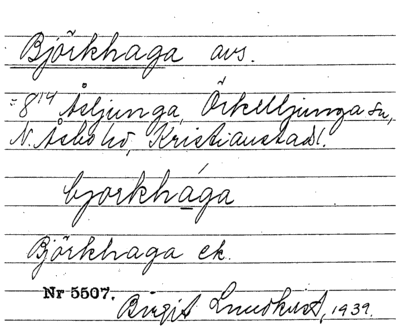 Björkhaga avs.
=8¹⁴ Åsljunga, Örkelljunga sn,
N. Åsbo hd, Kristianstad l.
bjorkhága
Björkhaga ek.
Nr 5507.
Birgit Lundkvist, 1939.